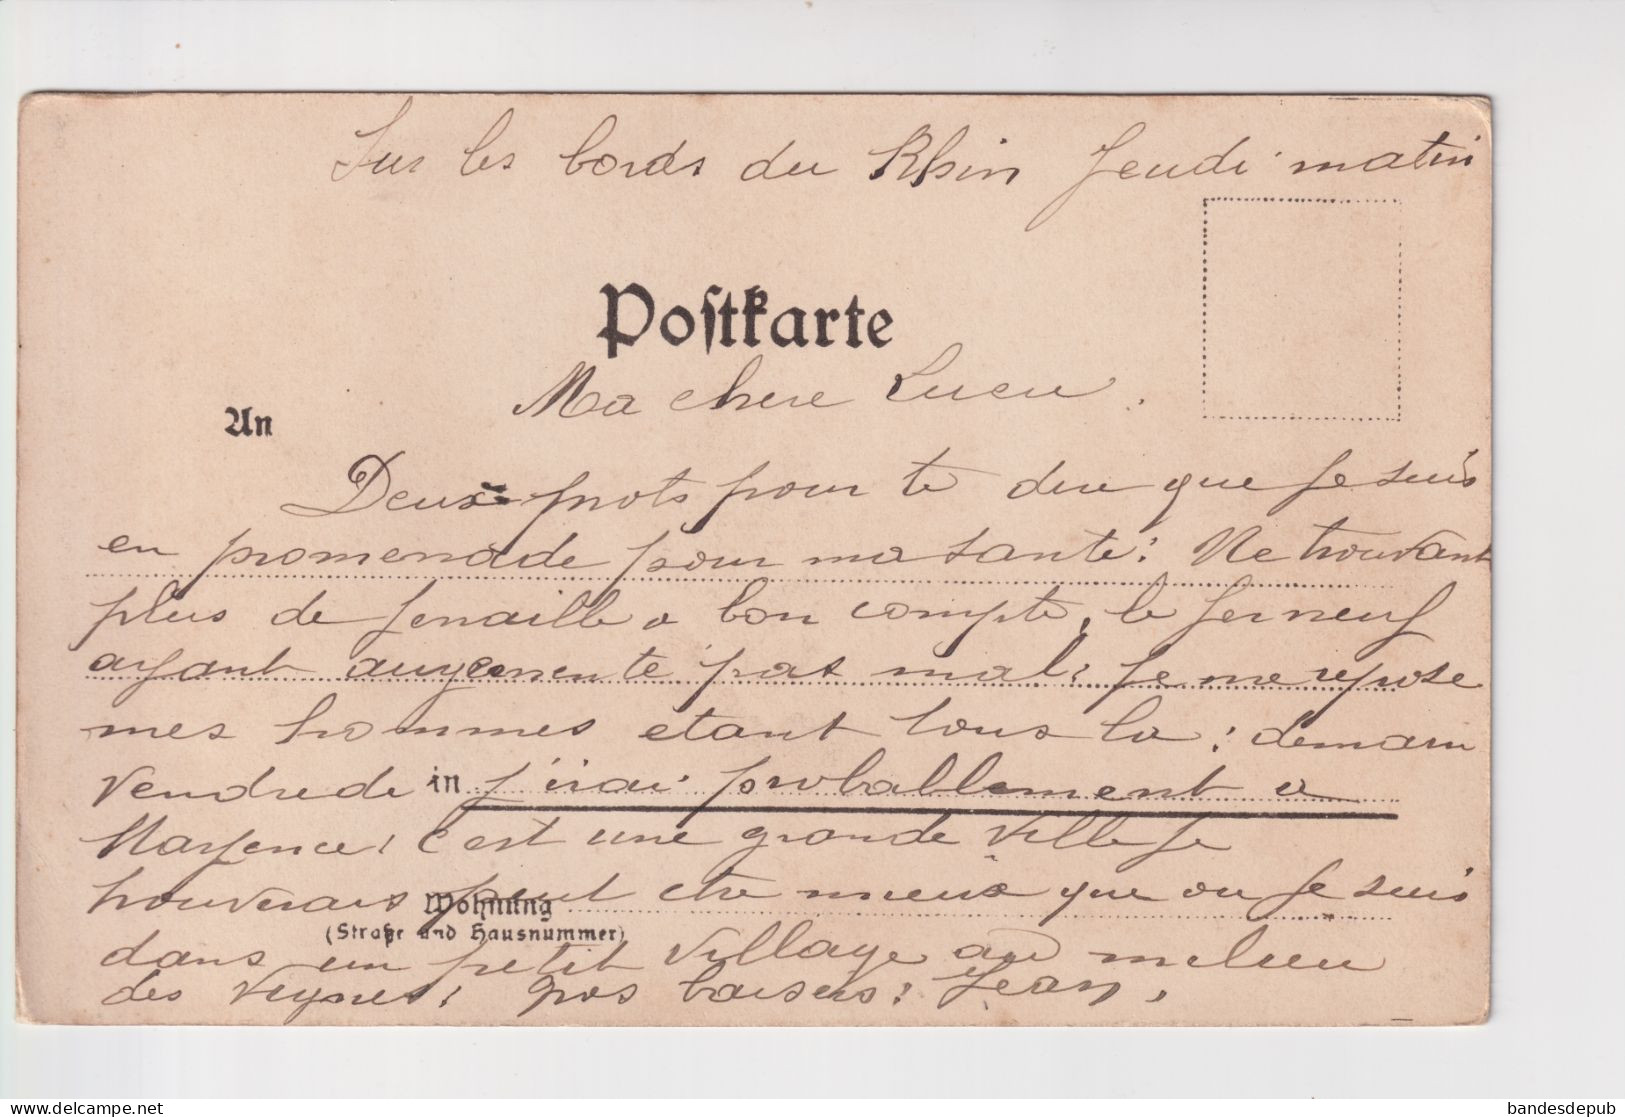 Sur les bords du Rhin Jeudi matin
Postkarte
Ma chere
An
Deux mots pour te dire que Je suis
en promenade pour ma sante: Ne trouvant
plus de ferraille a bon compte, le fer neuf
ayant augemente pas mal: Je me repose
mes hommes etant tous la: demain
Vendrede in j'irai probablement a
Mayence: C'est une grande Ville Je
trouverais peut etre mieux que ou Je suis
Wohnung
(Straße und Hausnummer)
dans un petit Village au milieu
des Vignes: Gros baisers: Jean,
bandesdepub
www.delcampe.net